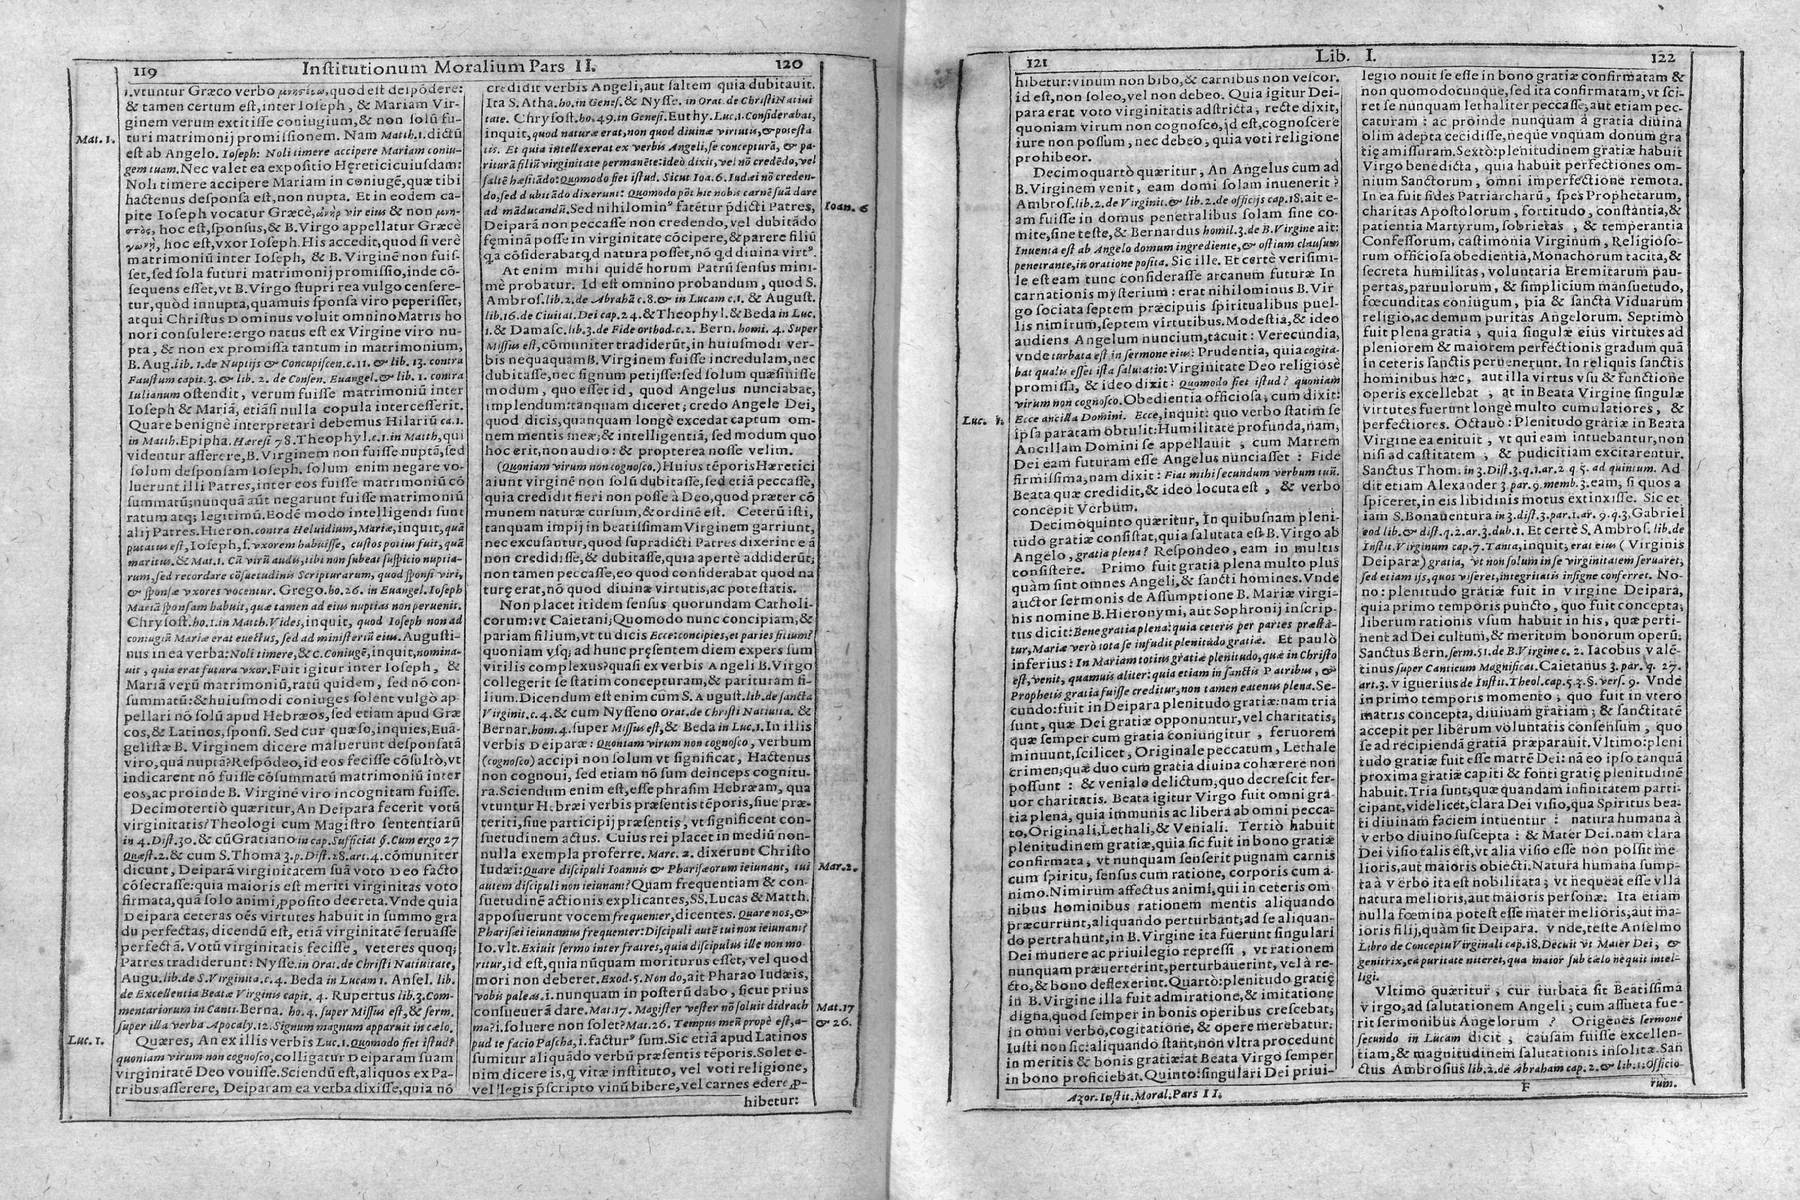 119 Institutionum Moralium Pars II. 120
i. vtuntur Græco verbo quod est despōdere:
& tamen certum est, inter Ioseph, & Mariam Vir-
ginem verum extitisse coniugium, & non solū fu-
turi matrimonij promissionem. Nam Matth. 1. dictū
est ab Angelo. Ioseph: Noli timere accipere Mariam coniu-
gem tuam. Nec valet ea expositio Hęreticicuiusdam:
Noli timere accipere Mariam in coniugē, quæ tibi
hactenus desponsa est, non nupta. Et in eodem ca-
pite Ioseph vocatur Græcè, vir eius & non
hoc est, sponsus, & B. Virgo appellatur Græcè
hoc est, vxor Ioseph. His accedit, quod si verè
matrimoniū inter Ioseph, & B. Virginē non fuis-
set, sed sola futuri matrimonij promissio, inde cō-
sequens esset, vt B. Virgo stupri rea vulgo censere-
tur, quòd innupta, quamuis sponsa viro peperisset,
atqui Christus Dominus voluit omnino Matris ho
nori consulere: ergo natus est ex Virgine viro nu-
pta, & non ex promissa tantum in matrimonium,
B. Aug. lib. 1. de Nuptijs & Concupiscen. c. 11. & lib. 13. contra
Faustum capit. 3. & lib. 2. de Consen. Euangel. & lib. 1. contra
Iulianum ostendit, verum fuisse matrimoniū inter
Ioseph & Mariā, etiāsi nulla copula intercesserit.
Quare benignè interpretari debemus Hilariū ca. 1.
in Matth. Epipha. Hæresi 78. Theophyl. c. 1. in Matth, qui
videntur asserere, B. Virginem non fuisse nuptā, sed
solum desponsam Ioseph. solum enim negare vo-
luerunt illi Patres, inter eos fuisse matrimoniū cō
summatū; nunquā aūt negarunt fuisse matrimoniū
ratum atq; legitimū. Eodē modo intelligendi sunt
alij Patres. Hieron. contra Heluidium, Mariæ, inquit, quā
putatus est, Ioseph, s. vxorem habuisse, custos potius fuit, quā
maritus. & Mat. 1. Cū virū audis, tibi non subeat suspicio nuptia-
rum, sed recordare cōsuetudinis Scripturarum, quod sponsi viri,
& sponsæ vxores vocentur. Grego. ho. 26. in Euangel. Ioseph
Mariā sponsam habuit, quæ tamen ad eius nuptias non peruenit.
Chrysost. ho. 1. in Matth. Vides, inquit, quod Ioseph non ad
coniugiū Mariæ erat euectus, sed ad ministeriū eius. Augusti-
nus in ea verba: Noli timere, &c. Coniugē, inquit, nomina-
uit, quia erat futura vxor. Fuit igitur inter Ioseph, &
Mariā verū matrimoniū, ratū quidem, sed nō con-
summatū: & huiusmodi coniuges solent vulgò ap-
pellari nō solū apud Hebræos, sed etiam apud Græ
cos, & Latinos, sponsi. Sed cur quæso, inquies, Euā-
gelistæ B. Virginem dicere maluerunt desponsatā
viro, quā nuptā? Respōdeo, id eos fecisse cōsultò, vt
indicarent nō fuisse cōsummatū matrimoniū inter
eos, ac proinde B. Virginē viro incognitam fuisse.
Decimotertiò quæritur, An Deipara fecerit votū
virginitatis? Theologi cum Magistro sententiarū
in 4. Dist. 30. & cū Gratiano in cap. Sufficiat §. Cum ergo 27
Quæst. 2. & cum S. Thoma 3. p. Dist. 28. art. 4. cōmuniter
dicunt, Deiparā virginitatem suā voto Deo facto
cōsecrasse: quia maioris est meriti virginitas voto
firmata, quā solo animi proposito decreta. Vnde quia
Deipara ceteras oēs virtutes habuit in summo gra
du perfectas, dicendū est, etiā virginitatē seruasse
perfectā. Votū virginitatis fecisse, veteres quoq;
Patres tradiderunt: Nysse. in Orat. de Christi Natiuitate,
Augu. lib. de S. Virginita. c. 4. Beda in Lucam 1. Ansel. lib.
de Excellentia Beatæ Virginis capit. 4. Rupertus lib. 3. Com-
mentariorum in Canti. Berna. ho. 4. super Missus est, & serm.
super illa verba Apocaly. 12. Signum magnum apparuit in cælo.
Quæres, An ex illis verbis Luc. 1. Quomodo fiet istud?
quoniam virum non cognosco, colligatur Deiparam suam
virginitatē Deo vouisse. Sciendū est, aliquos ex Pa-
tribus asserere, Deiparam ea verba dixisse, quia nō
Mat. 1.
Luc. 1.
credidit verbis Angeli, aut saltem quia dubitauit.
Ita S. Atha. ho. in Genes. & Nysse. in Orat. de Christi Natiui
tate. Chrysost. ho. 49. in Genesi. Euthy. Luc. 1. Considerabat,
inquit, quod naturæ erat, non quod diuinæ virtutis, & potesta
tis. Et quia intellexerat ex verbis Angeli, se concepturā, & pa-
riturā filiū virginitate permanēte: ideò dixit, vel nō credēdo, vel
saltē hæsitādo: Quomodo fiet istud. Sicut Ioa. 6. Iudæi nō creden-
do, sed dubitādo dixerunt: Quomodo pōt hic nobis carnē suā dare
ad māducandū. Sed nihilomin9 fatētur p̄dicti Patres,
Deiparā non peccasse non credendo, vel dubitādo
fęminā posse in virginitate cōcipere, & parere filiū
q̄a cōsiderabat qd natura posset, nō qd diuina virt9.
At enim mihi quidē horum Patrū sensus mini-
mè probatur. Id est omnino probandum, quod S.
Ambros. lib. 2. de Abrahā c. 8. & in Lucam c. 1. & August.
lib. 16. de Ciuitat. Dei cap. 24. & Theophyl. & Beda in Luc.
1. & Damasc. lib. 3. de Fide orthod. c. 2. Bern. homi. 4. Super
Missus est, cōmuniter tradiderūt, in huiusmodi ver-
bis nequaquam B. Virginem fuisse incredulam, nec
dubitasse, nec signum petijsse: sed solum quæsiuisse
modum, quo esset id, quod Angelus nunciabat,
implendum: tanquam diceret; credo Angele Dei,
quod dicis, quanquam longè excedat captum om-
nem mentis meæ; & intelligentiā, sed modum quo
hoc erit, non audio: & propterea nosse velim.
(Quoniam virum non cognosco.) Huius tēporis Hæretici
aiunt virginē non solū dubitasse, sed etiā peccasse,
quia credidit fieri non posse à Deo, quod præter cō
munem naturæ cursum, & ordinē est. Ceterū isti,
tanquam impij in beatissimam Virginem garriunt,
nec excusantur, quod supradicti Patres dixerint eā
non credidisse, & dubitasse, quia apertè addiderūt,
non tamen peccasse, eo quod considerabat quod na
turę erat, nō quod diuinæ virtutis, ac potestatis.
Non placet itidem sensus quorundam Catholi-
corum: vt Caietani; Quomodo nunc concipiam, &
pariam filium, vt tu dicis Ecce: concipies, et paries filium?
quoniam vsq; ad hunc pręsentem diem expers sum
virilis complexus? quasi ex verbis Angeli B. Virgo
collegerit se statim concepturam, & parituram fi-
lium. Dicendum est enim cum S. August. lib. de sancta
Virginit. c. 4. & cum Nysseno Orat. de Christi Natiuita. &
Bernar. hom. 4. super Missus est, & Beda in Luc. 1. In illis
verbis Deiparæ: Quoniam virum non cognosco, verbum
(cognosco) accipi non solum vt significat, Hactenus
non cognoui, sed etiam nō sum deinceps cognitu-
ra. Sciendum enim est, esse phrasim Hebræam, qua
vtuntur Hebræi verbis præsentis tēporis, siue præ-
teriti, siue participij præsentis, vt significent con-
suetudinem actus. Cuius rei placet in mediū non-
nulla exempla proferre. Marc. 2. dixerunt Christo
Iudæi: Quare discipuli Ioannis & Pharisæorum ieiunant, tui
autem discipuli non ieiunant? Quam frequentiam & con-
suetudinē actionis explicantes, SS. Lucas & Matth.
apposuerunt vocem frequenter, dicentes. Quare nos, &
Pharisæi ieiunamus frequenter: Discipuli autē tui non ieiunant?
Io. vlt. Exiuit sermo inter fratres, quia discipulus ille non mo-
ritur, id est, quia nūquam moriturus esset, vel quod
mori non deberet. Exod. 5. Non do, ait Pharao Iudæis,
vobis paleas. i. nunquam in posterū dabo, sicut prius
consueuerā dare. Mat. 17. Magister vester nō soluit didrach
ma? i. soluere non solet? Mat. 26. Tempus meū propè est, a-
pud te facio Pascha, i. factur9 sum. Sic etiā apud Latinos
sumitur aliquādo verbū pręsentis tēporis. Solet e-
nim dicere is, q̄ vitæ instituto, vel voti religione,
vel legis p̄scripto vinū bibere, vel carnes edere p-
hibetur:
Ioan. 6
Mar. 2.
Mat. 17
& 26.
121 Lib. I. 122
hibetur: vinum non bibo, & carnibus non vescor.
id est, non soleo, vel non debeo. Quia igitur Dei-
para erat voto virginitatis adstricta, recte dixit,
quoniam virum non cognosco, id est, cognoscere
iure non possum, nec debeo, quia voti religione
prohibeor.
Decimoquartò quæritur, An Angelus cum ad
B. Virginem venit, eam domi solam inuenerit?
Ambros. lib. 2. de Virginit. & lib. 2. de officijs cap. 18. ait e-
am fuisse in domus penetralibus solam sine co-
mite, sine teste, & Bernardus homil. 3. de B. Virgine ait:
Inuenta est ab Angelo domum ingrediente, & ostium clausum
penetrante, in oratione posita. Sic ille. Et certè verisimi-
le est eam tunc considerasse arcanum futuræ In
carnationis mysterium: erat nihilominus B. Vir
go sociata septem præcipuis spiritualibus puel-
lis nimirum, septem virtutibus. Modestia, & ideo
audiens Angelum nuncium, tacuit: Verecundia,
vnde turbata est in sermone eius: Prudentia, quia cogita-
bat qualis esset ista salutatio: Virginitate Deo religiosè
promissa, & ideo dixit: Quomodo fiet istud? quoniam
virum non cognosco. Obedientia officiosa, cum dixit:
Ecce ancilla Domini. Ecce, inquit: quo verbo statim se
ipsa paratam obtulit: Humilitate profunda, nam;
Ancillam Domini se appellauit, cum Matrem
Dei eam futuram esse Angelus nunciasset: Fide
firmissima, nam dixit: Fiat mihi secundum verbum tuū.
Beata quæ credidit, & ideo locuta est, & verbo
concepit Verbum.
Decimoquinto quæritur, In quibusnam pleni-
tudo gratiæ consistat, qua salutata est B. Virgo ab
Angelo, gratia plena? Respondeo, eam in multis
consistere. Primo fuit gratia plena multo plus
quàm sint omnes Angeli, & sancti homines. Vnde
auctor sermonis de Assumptione B. Mariæ virgi-
his nomine B. Hieronymi, aut Sophronij inscrip-
tus dicit: Bene gratia plena: quia ceteris per partes præsta-
tur, Mariæ verò tota se infudit plenitudo gratiæ. Et paulò
inferius: In Mariam totius gratiæ plenitudo, quæ in Christo
est, venit, quamuis aliter: quia etiam in sanctis Patribus, &
Prophetis gratia fuisse creditur, non tamen eatenus plena. Se-
cundo: fuit in Deipara plenitudo gratiæ: nam tria
sunt, quæ Dei gratiæ opponuntur, vel charitatis;
quæ semper cum gratia coniungitur, feruorem
minuunt, scilicet, Originale peccatum, Lethale
crimen; quæ duo cum gratia diuina cohærere non
possunt: & veniale delictum, quo decrescit fer-
uor charitatis. Beata igitur Virgo fuit omni gra-
tia plena, quia immunis ac libera ab omni pecca-
to, Originali, Lethali, & Veniali. Tertiò habuit
plenitudinem gratiæ, quia sic fuit in bono gratiæ
confirmata, vt nunquam senserit pugnam carnis
cum spiritu, sensus cum ratione, corporis cum a-
nimo. Nimirum affectus animi, qui in ceteris om
nibus hominibus rationem mentis aliquando
præcurrunt, aliquando perturbant, ad se aliquan-
do pertrahunt, in B. Virgine ita fuerunt singulari
Dei munere ac priuilegio repressi, vt rationem
nunquam præuerterint, perturbauerint, vel à re-
cto, & bono deflexerint. Quartò: plenitudo gratię
in B. Virgine illa fuit admiratione, & imitatione
digna, quod semper in bonis operibus cresceba̅t,
in omni verbo, cogitatione, & opere merebatur.
Iusti non sic: aliquando stant; non vltra procedunt
in meritis & bonis gratiæ: at Beata Virgo semper
in bono proficiebat. Quinto: singulari Dei priui-
Azor. Instit. Moral. Pars II.
Luc. 1.
legio nouit se esse in bono gratiæ confirmatam &
non quomodocunque, sed ita confirmatam, vt sci-
ret se nunquam lethaliter peccasse, aut etiam pec-
caturam: ac proinde nunquam à gratia diuina
olim adepta cecidisse, neque vnquam donum gra
tię amissuram. Sextò: plenitudinem gratiæ habuit
Virgo benedicta, quia habuit perfectiones om-
nium Sanctorum, omni imperfectione remota.
In ea fuit fides Patriarcharū, spes Prophetarum,
charitas Apostolorum, fortitudo, constātia, &
patientia Martyrum, sobrietas, & temperantia
Confessorum, castimonia Virginum, Religioso-
rum officiosa obedientia, Monachorum tacita, &
secreta humilitas, voluntaria Eremitarum pau-
pertas, paruulorum, & simplicium mansuetudo,
fœcunditas coniugum, pia & sancta Viduarum
religio, ac demum puritas Angelorum. Septimò
fuit plena gratia, quia singulæ eius virtutes ad
pleniorem & maiorem perfectionis gradum quā
in ceteris sanctis peruenerunt. In reliquis sanctis
hominibus hæc, aut illa virtus vsu & functione
operis excellebat, at in Beata Virgine singulæ
virtutes fuerunt longè multo cumulatiores, &
perfectiores. Octauò: Plenitudo gratiæ in Beata
Virgine ea enituit, vt qui eam intuebantur, non
nisi ad castitatem, & pudicitiam excitarentur.
Sanctus Thom. in 3. Dist. 3. q. 1. ar. 2 q 5. ad quintum. Ad
dit etiam Alexander 3. par. 9. memb. 3. eam, si quos a
spiceret, in eis libidinis motus extinxisse. Sic et
iam S. Bonauentura in 3. dist. 3. par. 1. ar. 9. q. 3. Gabriel
eod lib. & dist. q. 2. ar. 3. dub. 1. Et certè S. Ambros. lib. de
Instit. Virginum cap. 7. Tanta, inquit, erat eius (Virginis
Deiparæ) gratia, vt non solum in se virginitatem seruaret,
sed etiam ijs, quos viseret, integritatis insigne conferret. No-
no: plenitudo gratiæ fuit in Virgine Deipara,
quia primo temporis puncto, quo fuit concepta;
liberum rationis vsum habuit in his, quæ perti-
nent ad Dei cultum, & meritum bonorum operū;
Sanctus Bern. serm. 51. de B. Virgine c. 2. Iacobus Valē-
tinus super Canticum Magnificat. Caietanus 3. par. q. 27.
art. 3. Viguerius de Instit. Theol. cap. 5. 3. §. vers. 9. Vnde
in primo temporis momento, quo fuit in vtero
matris concepta, diuinam gratiam, & sanctitatē
accepit per liberum voluntatis consensum, quo
se ad recipiendā gratiā præparauit. Vltimo: pleni
tudo gratiæ fuit esse matrē Dei: nā eo ipso tanquā
proxima gratiæ capiti & fonti gratię plenitudinē
habuit. Tria sunt, quæ quandam infinitatem parti-
cipant, videlicet, clara Dei visio, qua Spiritus bea-
ti diuinam faciem intuentur: natura humana à
verbo diuino suscepta: & Mater Dei. nam clara
Dei visio talis est, vt alia visio esse non possit me-
lioris, aut maioris obiecti. Natura humana sump-
ta à Verbo ita est nobilitata; vt nequeat esse vlla
natura melioris, aut maioris personæ. Ita etiam
nulla fœmina potest esse mater melioris, aut ma-
ioris filij, quàm sit Deipara. Vnde, teste Anselmo
Libro de Conceptu Virginali cap. 18. Decuit vt Mater Dei, &
genitrix, ea puritate niteret, qua maior sub cælo nequit intel-
ligi.
Vltimo quæritur, cur turbata sit Beatissima
Virgo, ad salutationem Angeli; cum assueta fue-
rit sermonibus Angelorum? Origenes sermone
secundo in Lucam dicit, causam fuisse excellen-
tiam, & magnitudinem salutationis insolitæ. San
ctus Ambrosius lib. 2. de Abraham cap. 2. & lib. 1. Officio-
F
rum.